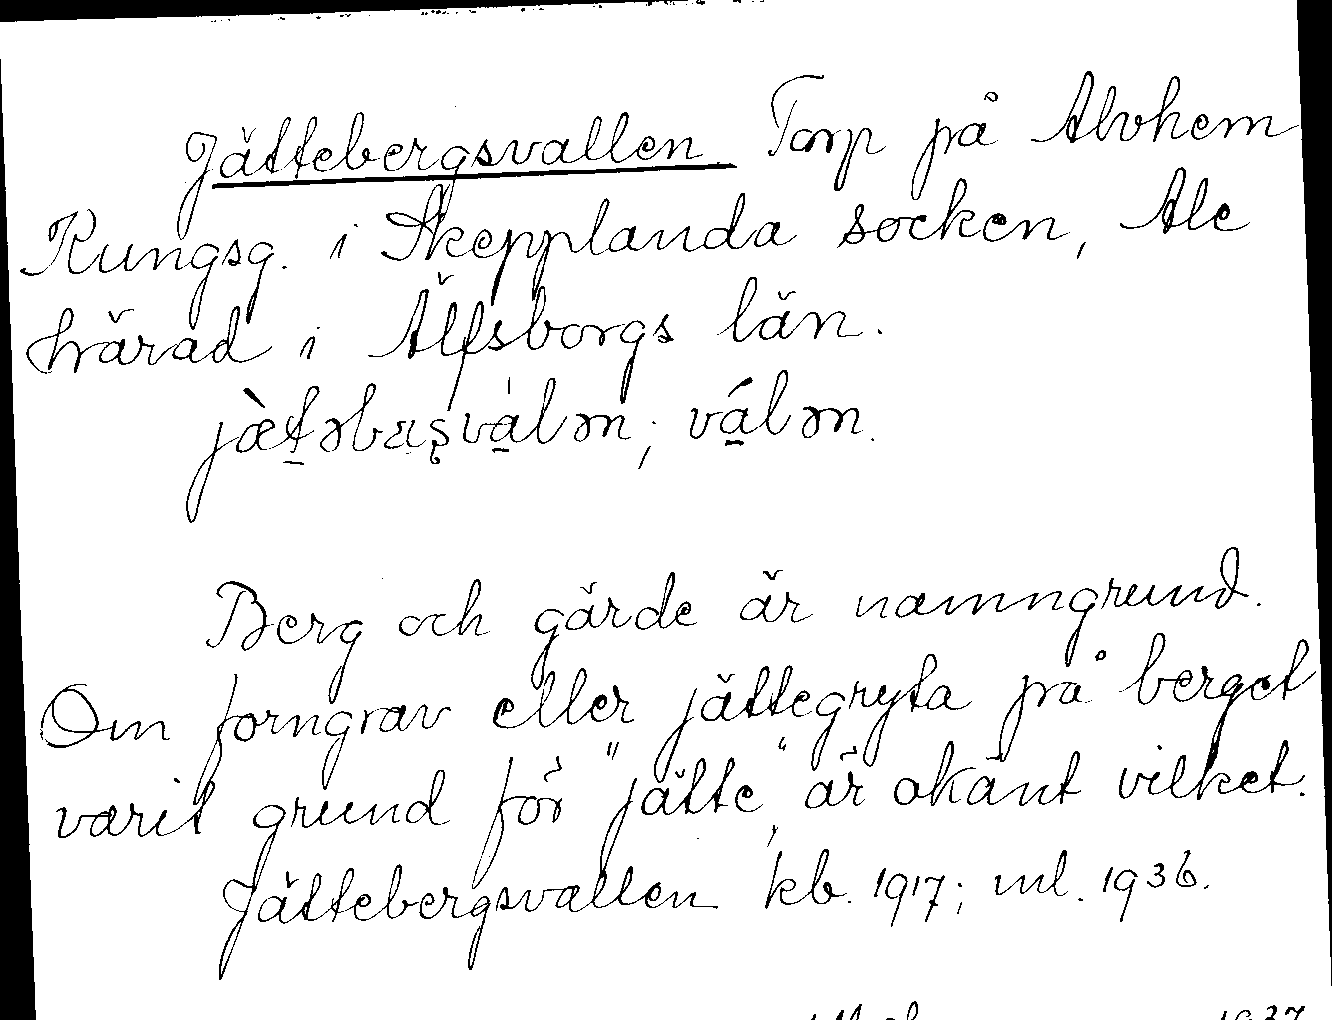 Jättebergsvallen. Torp på Alvhem
Kungsg. i Skepplanda socken, Ale
härad i Älfsborgs län.
jæ̀t̠əbæʂvàl̠ən; vál̠ən.
Berg och gärde är namngrund.
Om forngrav eller jättegryta på berget
varit grund för "jätte", är okänt vilket.
Jättebergsvallen kb. 1917; ml. 1936.
1937